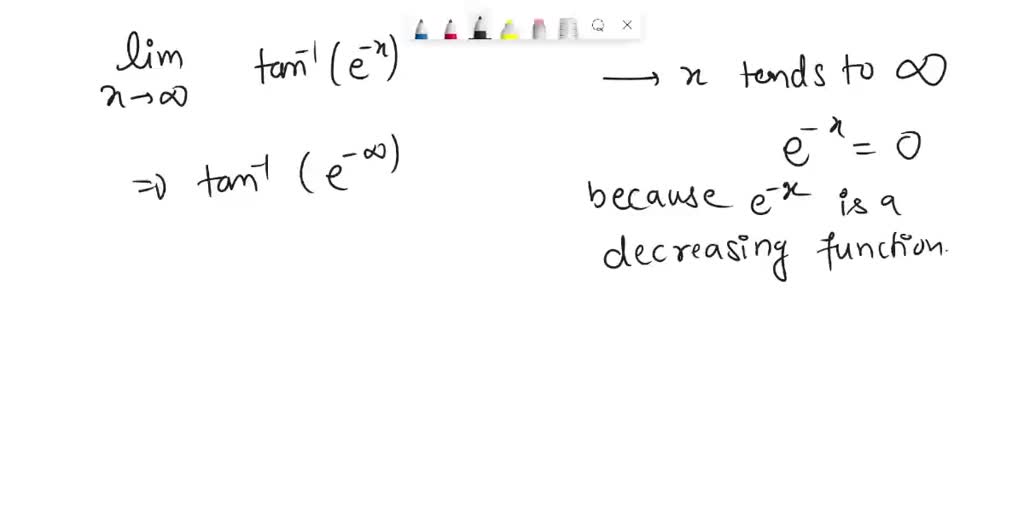 lim x→∞ tan⁻¹(e⁻ˣ)
⇒ tan⁻¹(e^-∞)
→ x tends to ∞
e⁻ˣ = 0
because e⁻ˣ is a
decreasing function.